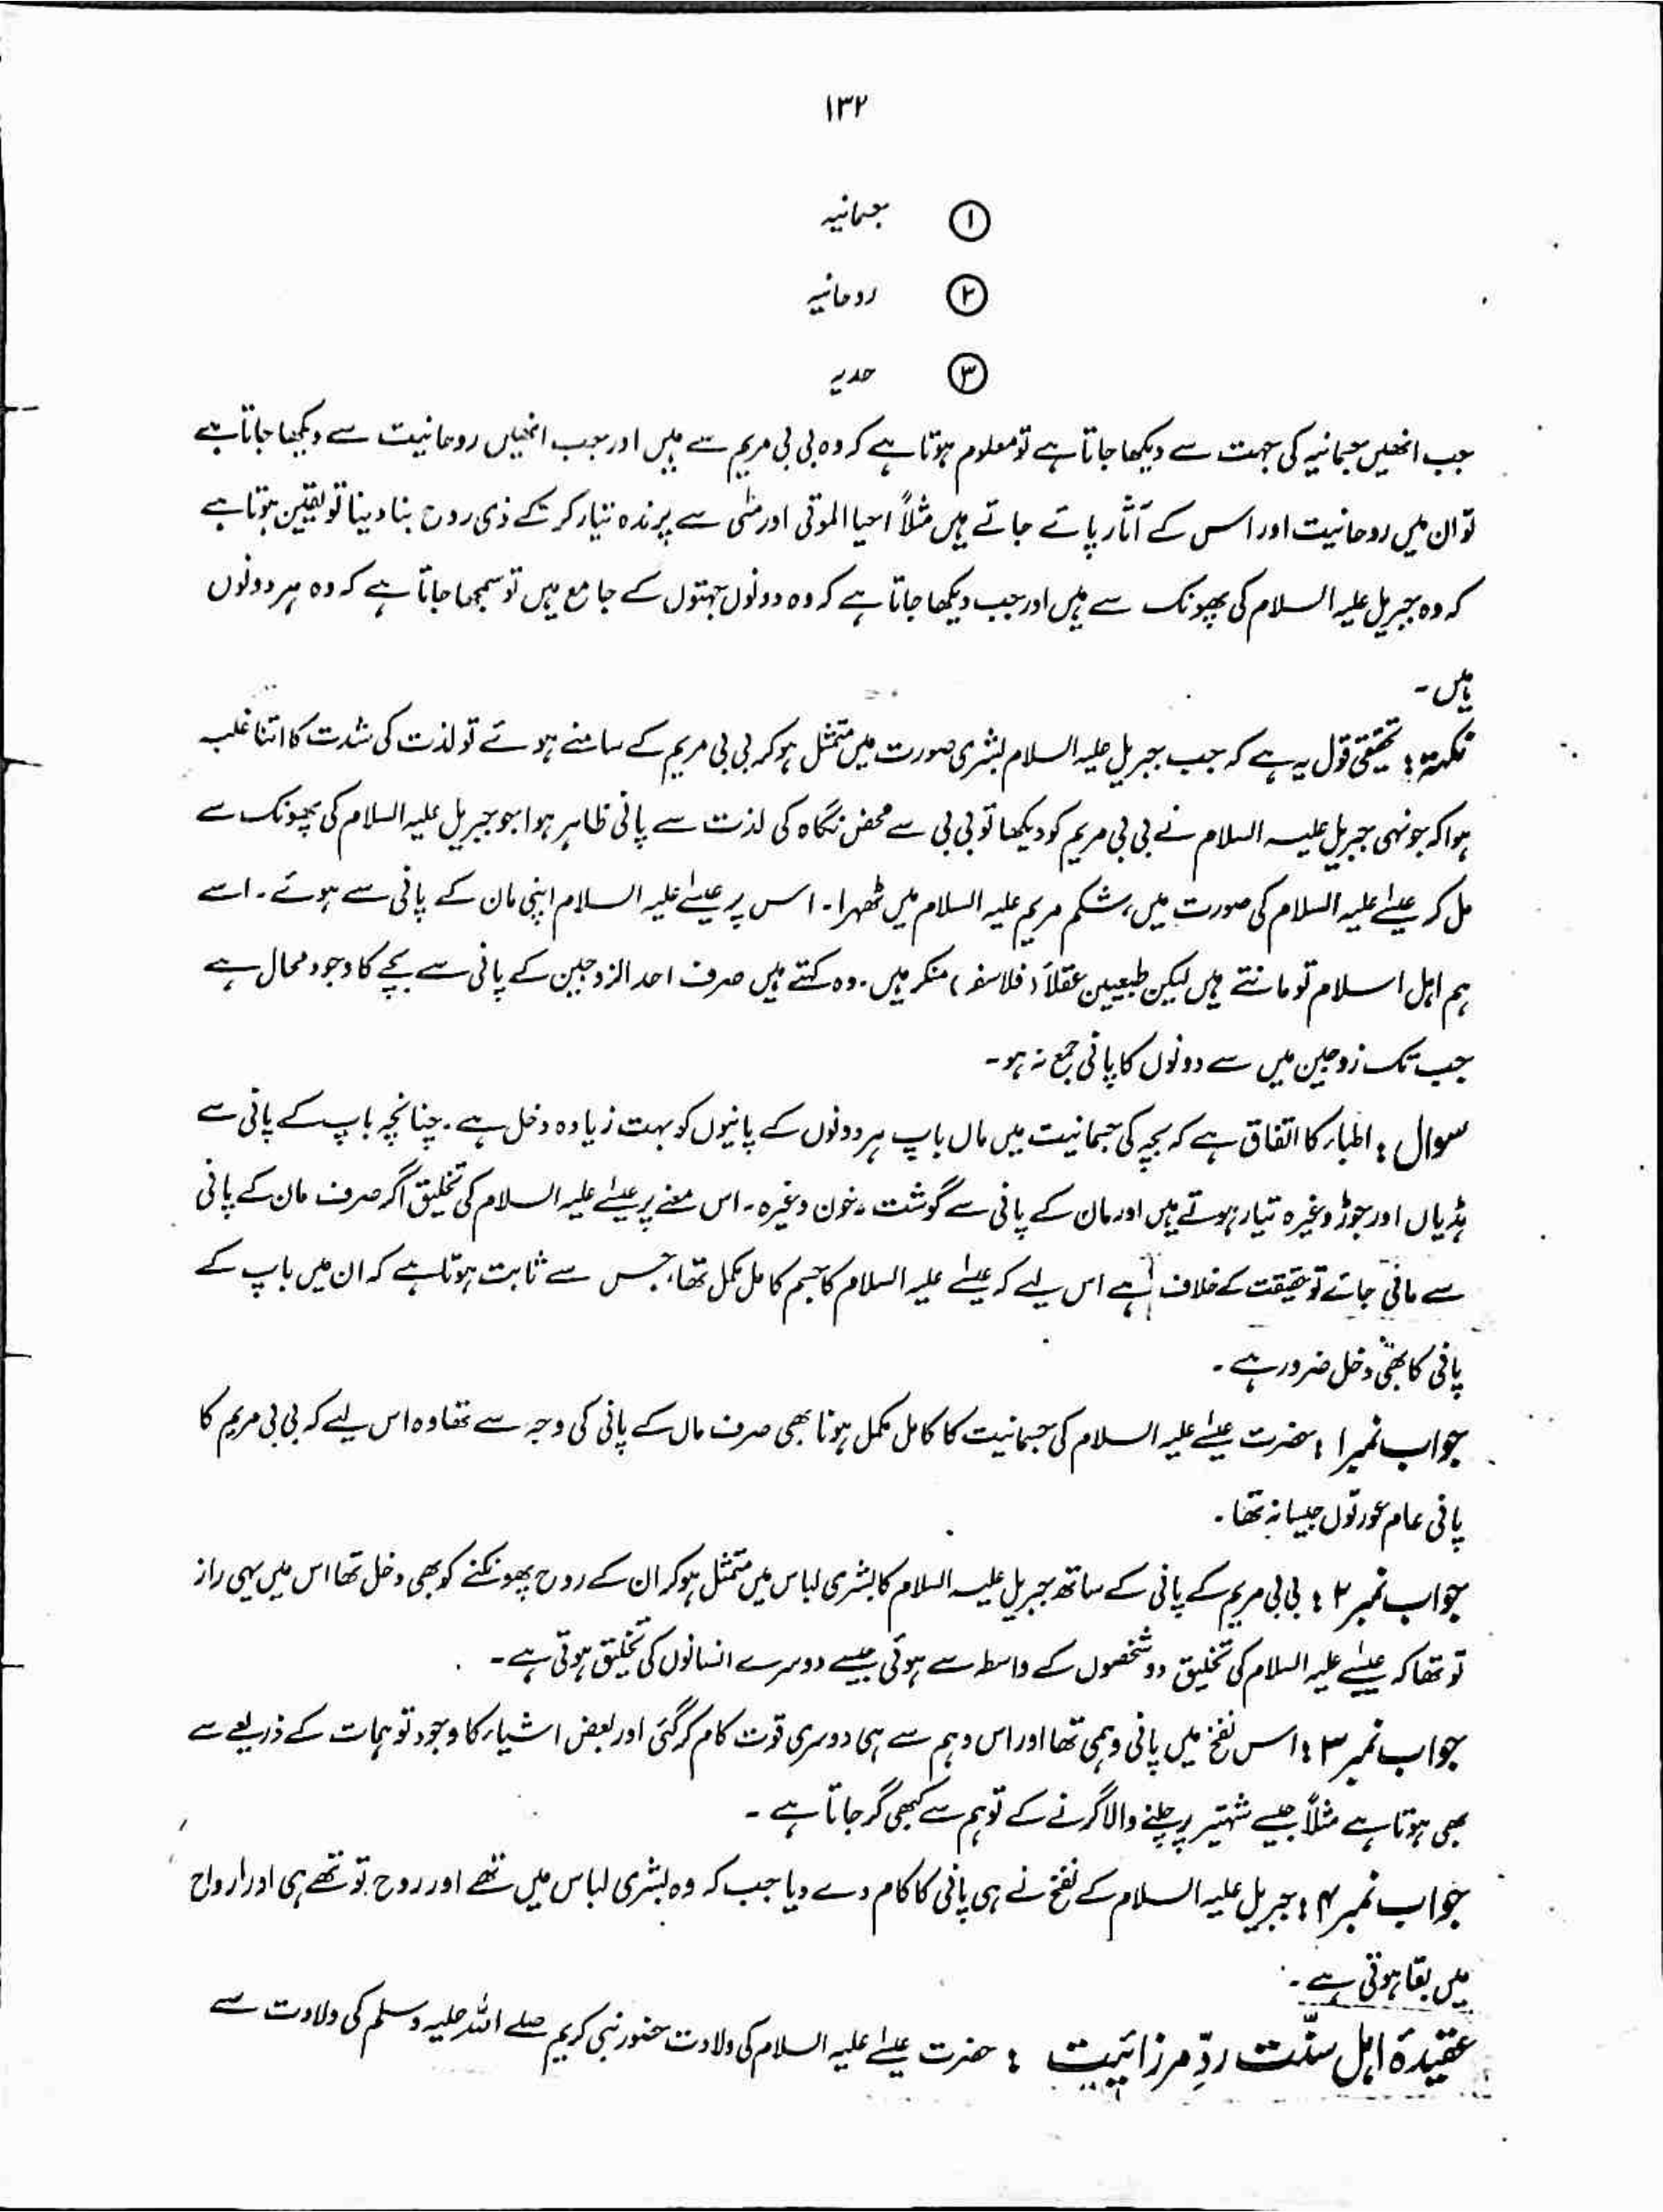 ۱۳۲
① جسمانیہ
② روحانیہ
③ حدیہ
جب انھیں جسمانیہ کی جہت سے دیکھا جاتا ہے تو معلوم ہوتا ہے کہ وہ بی بی مریم سے ہیں اور جب انھیں روحانیت سے دیکھا جاتا ہے
تو ان میں روحانیت اور اس کے آثار پائے جاتے ہیں مثلاً احیا الموتی اور مٹی سے پرندہ تیار کر کے ذی روح بنا دینا تو یقین ہوتا ہے
کہ وہ جبریل علیہ السلام کی پھونک سے ہیں اور جب دیکھا جاتا ہے کہ وہ دونوں جہتوں کے جامع ہیں تو سمجھا جاتا ہے کہ وہ ہر دونوں
ہیں۔
نکتہ : تحقیقی قول یہ ہے کہ جب جبریل علیہ السلام بشری صورت میں متمثل ہو کر بی بی مریم کے سامنے ہوئے تو لذت کی شدت کا اتنا غلبہ
ہوا کہ جونہی جبریل علیہ السلام نے بی بی مریم کو دیکھا تو بی بی سے محض نگاہ کی لذت سے پانی ظاہر ہوا جو جبریل علیہ السلام کی پھونک سے
مل کر عیسےٰ علیہ السلام کی صورت میں، شکم مریم علیہ السلام میں ٹھہرا۔ اس پر عیسےٰ علیہ السلام اپنی مان کے پانی سے ہوئے۔ اسے
ہم اہل اسلام تو مانتے ہیں لیکن طبعیین عقلاً (فلاسفہ) منکر ہیں۔ وہ کہتے ہیں صرف احد الزوجین کے پانی سے بچے کا وجود محال ہے
جب تک زوجین میں سے دونوں کا پانی جمع نہ ہو۔
سوال : اطباء کا اتفاق ہے کہ بچہ کی جسمانیت میں ماں باپ ہر دونوں کے پانیوں کو بہت زیادہ دخل ہے۔ چنانچہ باپ کے پانی سے
ہڈیاں اور جوڑ وغیرہ تیار ہوتے ہیں اور مان کے پانی سے گوشت، خون وغیرہ۔ اس معنے پر عیسےٰ علیہ السلام کی تخلیق اگر صرف مان کے پانی
سے مانی جائے تو حقیقت کے خلاف ہے اس لیے کہ عیسےٰ علیہ السلام کا جسم کامل مکمل تھا، جس سے ثابت ہوتا ہے کہ ان میں باپ کے
پانی کا بھی دخل ضرور ہے۔
جواب نمبر ۱ : حضرت عیسےٰ علیہ السلام کی جسمانیت کا کامل مکمل ہونا بھی صرف ماں کے پانی کی وجہ سے تھا وہ اس لیے کہ بی بی مریم کا
پانی عام عورتوں جیسا نہ تھا۔
جواب نمبر ۲ : بی بی مریم کے پانی کے ساتھ جبریل علیہ السلام کا بشری لباس میں متمثل ہو کر ان کے روح پھونکنے کو بھی دخل تھا اس میں یہی راز
تو تھا کہ عیسےٰ علیہ السلام کی تخلیق دو شخصوں کے واسطہ سے ہوئی جیسے دوسرے انسانوں کی تخلیق ہوتی ہے۔
جواب نمبر ۳ : اس نفخ میں پانی وہمی تھا اور اس وہم سے ہی دوسری قوت کام کر گئی اور بعض اشیاء کا وجود توہمات کے ذریعے سے
بھی ہوتا ہے مثلاً جیسے شہتیر پر چلنے والا گرنے کے توہم سے کبھی گر جاتا ہے۔
جواب نمبر ۴ : جبریل علیہ السلام کے نفخ نے ہی پانی کا کام دے دیا جب کہ وہ بشری لباس میں تھے اور روح تو تھے ہی اور ارواح
میں بقا ہوتی ہے۔
عقیدۂ اہل سنّت ردِّ مرزائیت : حضرت عیسےٰ علیہ السلام کی ولادت حضور نبی کریم صلے اللہ علیہ وسلم کی ولادت سے